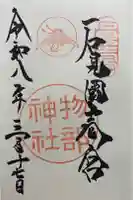 石見國
物部
神社
令和八年三月十七日